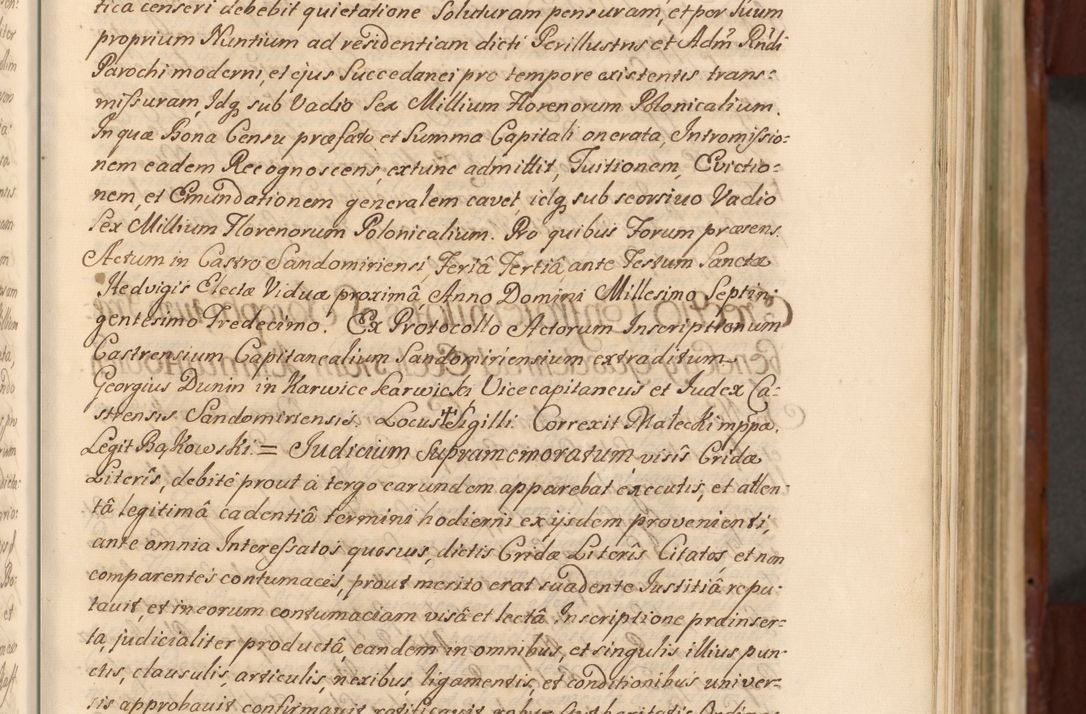 tica censeri debebit quietatione Soluturam pensuram, et per Suum
proprium Nuntium ad residentiam dicti Perillustris et Adm Rndi
Parochi moderni, et ejus Succedanei pro tempore existentis trans=
missuram, Idq sub Vadio Sex Millium Florenorum Polonicalium.
In quæ Bona Censu præfato et Summa Capitali onerata, Intromissio=
nem eadem Recognoscens, extunc admittit, Tuitionem, Evictio=
nem, et Emundationem generalem cavet, idq sub seorsivo Vadio
Sex Millium Florenorum Polonicalium. Pro quibus Forum præsens.
Actum in Castro Sandomiriensi, Feriâ Tertiâ ante Festum Sanctæ
Hedvigis Electæ Viduæ proximâ, Anno Domini Millesimo Septin=
gentesimo Tredecimo. Ex Protocollo Actorum Inscriptionum
Castrensium Capitanealium Sandomiriensium extraditum
Georgius Dunin in Karwice Karwicki Vicecapitaneus et Judex Ca=
strensis Sandomiriensis. Locus Sigilli. Correxit Małecki mppa.
Legit Bąkowski. = Judicium Supramemoratum visis Cridæ
Literis, debitè prout à tergo earundem apparebat executis, et atten=
tâ legitimâ cadentiâ termini hodierni ex ijsdem provenienti,
ante omnia Interessatos quosvis, dictis Cridæ Literis Citatos, et non
comparentes contumaces, prout merito erat suadente Justitiâ repu=
tavit, et in eorum contumaciam visâ et lectâ Inscriptione præinser=
ta, judicialiter productâ eandem in omnibus, et singulis illius pun=
ctis, clausulis, articulis, nexibus, ligamentis, et conditionibus univer=
sis approbavit confirmavit ratificavit